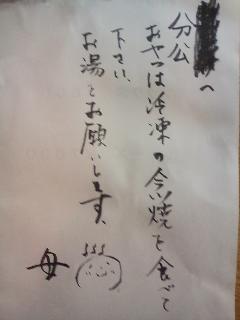 へ
分公
おやつは冷凍の今川焼を食べて
下さい、
お湯をお願いします、
母